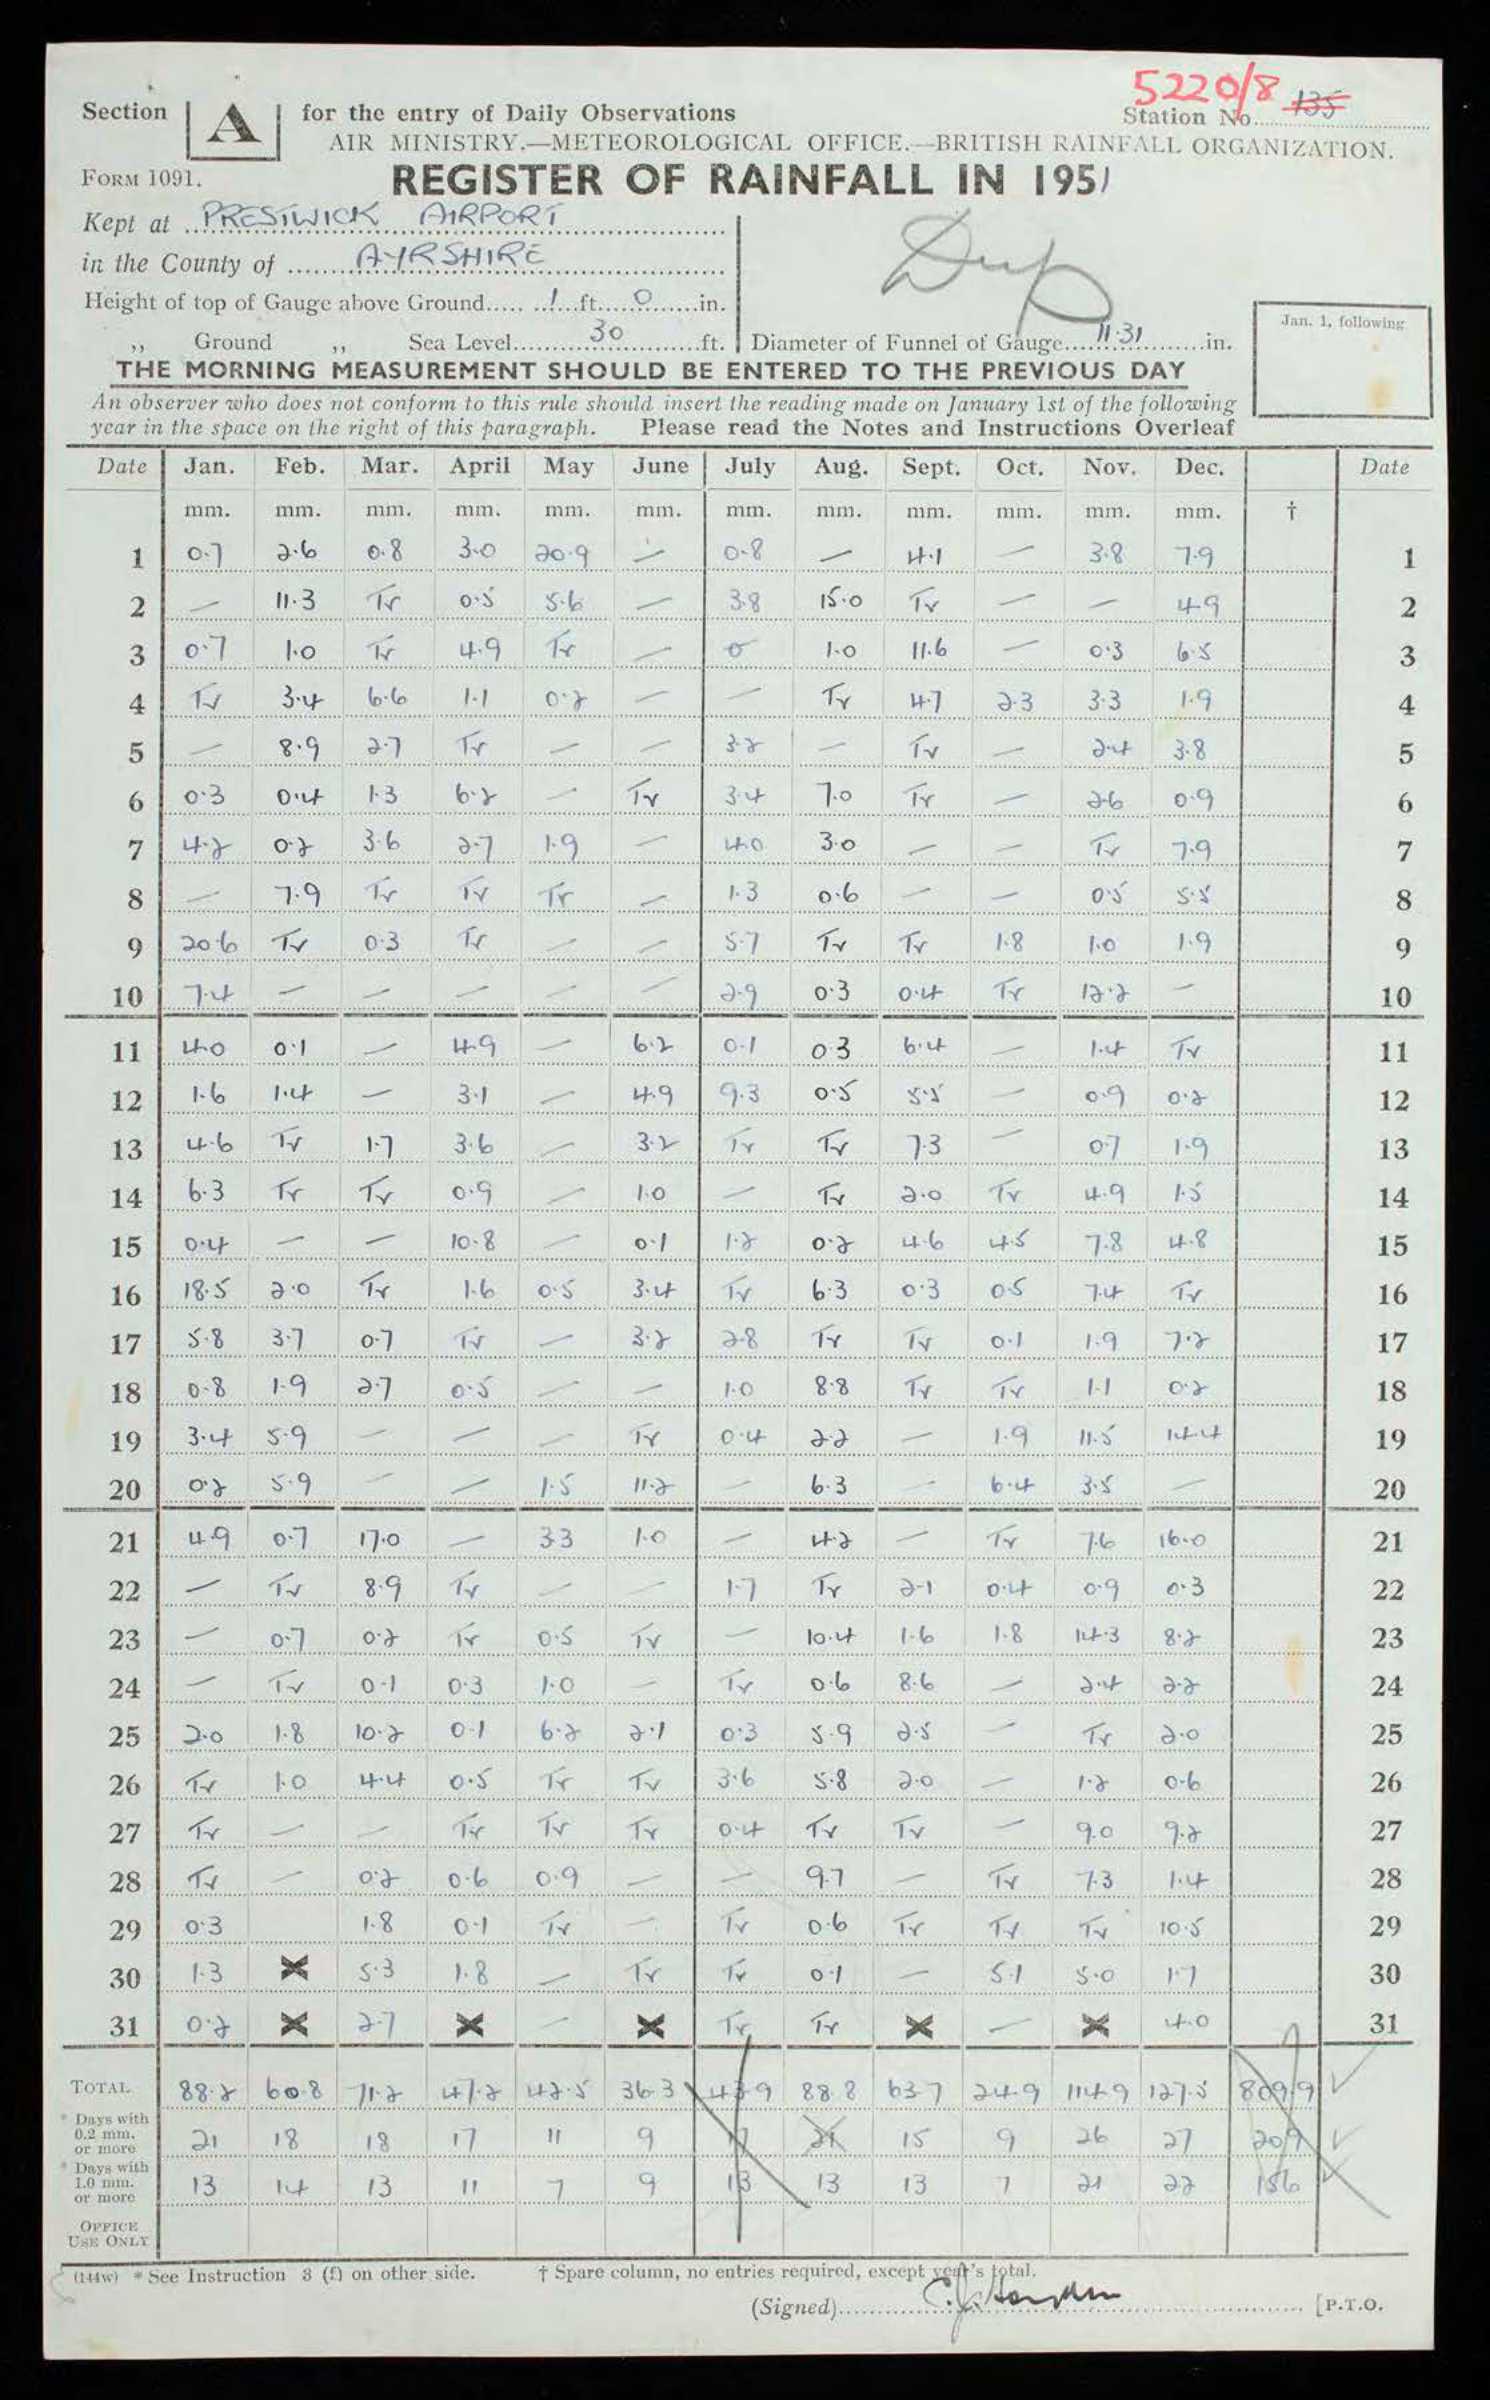 5220/8
Section A for the entry of Daily Observations Station No. 135
AIR MINISTRY.—METEOROLOGICAL OFFICE.—BRITISH RAINFALL ORGANIZATION.
FORM 1091. REGISTER OF RAINFALL IN 1951
Kept at PRESTWICK AIRPORT
in the County of AYRSHIRE
Dup
Height of top of Gauge above Ground 1 ft. 0 in.
Jan. 1, following
,, Ground ,, Sea Level 30 ft. Diameter of Funnel of Gauge 11.31 in.
THE MORNING MEASUREMENT SHOULD BE ENTERED TO THE PREVIOUS DAY
An observer who does not conform to this rule should insert the reading made on January 1st of the following
year in the space on the right of this paragraph. Please read the Notes and Instructions Overleaf
Date Jan. Feb. Mar. April May June July Aug. Sept. Oct. Nov. Dec. Date
mm. mm. mm. mm. mm. mm. mm. mm. mm. mm. mm. mm. †
1 0.7 2.6 0.8 3.0 20.9 — 0.8 — 4.1 — 3.8 7.9 1
2 — 11.3 Tr 0.5 5.6 — 3.8 15.0 Tr — — 4.9 2
3 0.7 1.0 Tr 4.9 Tr — 1.0 11.6 — 0.3 6.5 3
4 Tr 3.4 6.6 1.1 0.2 — — Tr 4.7 2.3 3.3 1.9 4
5 — 8.9 2.7 Tr — — 3.2 — Tr — 2.4 3.8 5
6 0.3 0.4 1.3 6.2 — Tr 3.4 7.0 Tr — 2.6 0.9 6
7 4.2 0.2 3.6 2.7 1.9 — 4.0 3.0 — — Tr 7.9 7
8 — 7.9 Tr Tr Tr — 1.3 0.6 — — 0.5 5.5 8
9 20.6 Tr 0.3 Tr — — 5.7 Tr Tr 1.8 1.0 1.9 9
10 7.4 — — — — — 2.9 0.3 0.4 Tr 12.2 — 10
11 4.0 0.1 — 4.9 — 6.2 0.1 0.3 6.4 — 1.4 Tr 11
12 1.6 1.4 — 3.1 — 4.9 9.3 0.5 5.5 — 0.9 0.2 12
13 4.6 Tr 1.7 3.6 — 3.2 Tr Tr 7.3 — 0.7 1.9 13
14 6.3 Tr Tr 0.9 — 1.0 — Tr 2.0 Tr 4.9 1.5 14
15 0.4 — — 10.8 — 0.1 1.2 0.2 4.6 4.5 7.8 4.8 15
16 18.5 2.0 Tr 1.6 0.5 3.4 Tr 6.3 0.3 0.5 7.4 Tr 16
17 5.8 3.7 0.7 Tr — 3.2 2.8 Tr Tr 0.1 1.9 7.2 17
18 0.8 1.9 2.7 0.5 — — 1.0 8.8 Tr Tr 1.1 0.2 18
19 3.4 5.9 — — — Tr 0.4 2.2 — 1.9 11.5 14.4 19
20 0.2 5.9 — — 1.5 11.2 — 6.3 — 6.4 3.5 — 20
21 4.9 0.7 17.0 — 3.3 1.0 — 4.2 — Tr 7.6 16.0 21
22 — Tr 8.9 Tr — — 1.7 Tr 2.1 0.4 0.9 0.3 22
23 — 0.7 0.2 Tr 0.5 Tr — 10.4 1.6 1.8 14.3 8.2 23
24 — Tr 0.1 0.3 1.0 — Tr 0.6 8.6 — 2.4 2.2 24
25 2.0 1.8 10.2 0.1 6.2 2.1 0.3 5.9 2.5 — Tr 2.0 25
26 Tr 1.0 4.4 0.5 Tr Tr 3.6 5.8 2.0 — 1.2 0.6 26
27 Tr — — Tr Tr Tr 0.4 Tr Tr — 9.0 9.2 27
28 Tr — 0.2 0.6 0.9 — — 9.7 — Tr 7.3 1.4 28
29 0.3 1.8 0.1 Tr — Tr 0.6 Tr Tr Tr 10.5 29
30 1.3 X 5.3 1.8 — Tr Tr 0.1 — 5.1 5.0 1.7 30
31 0.2 X 2.7 X — X Tr Tr X — X 4.0 31
TOTAL 88.2 60.8 71.2 47.2 42.5 36.3 43.9 88.8 63.7 24.9 114.9 127.5 809.9
* Days with 0.2 mm. or more 21 18 18 17 11 9 17 21 15 9 26 27 209
* Days with 1.0 mm. or more 13 14 13 11 7 9 13 13 13 7 21 22 156
OFFICE USE ONLY
(144w) * See Instruction 3 (f) on other side. † Spare column, no entries required, except year's total.
(Signed) [P.T.O.